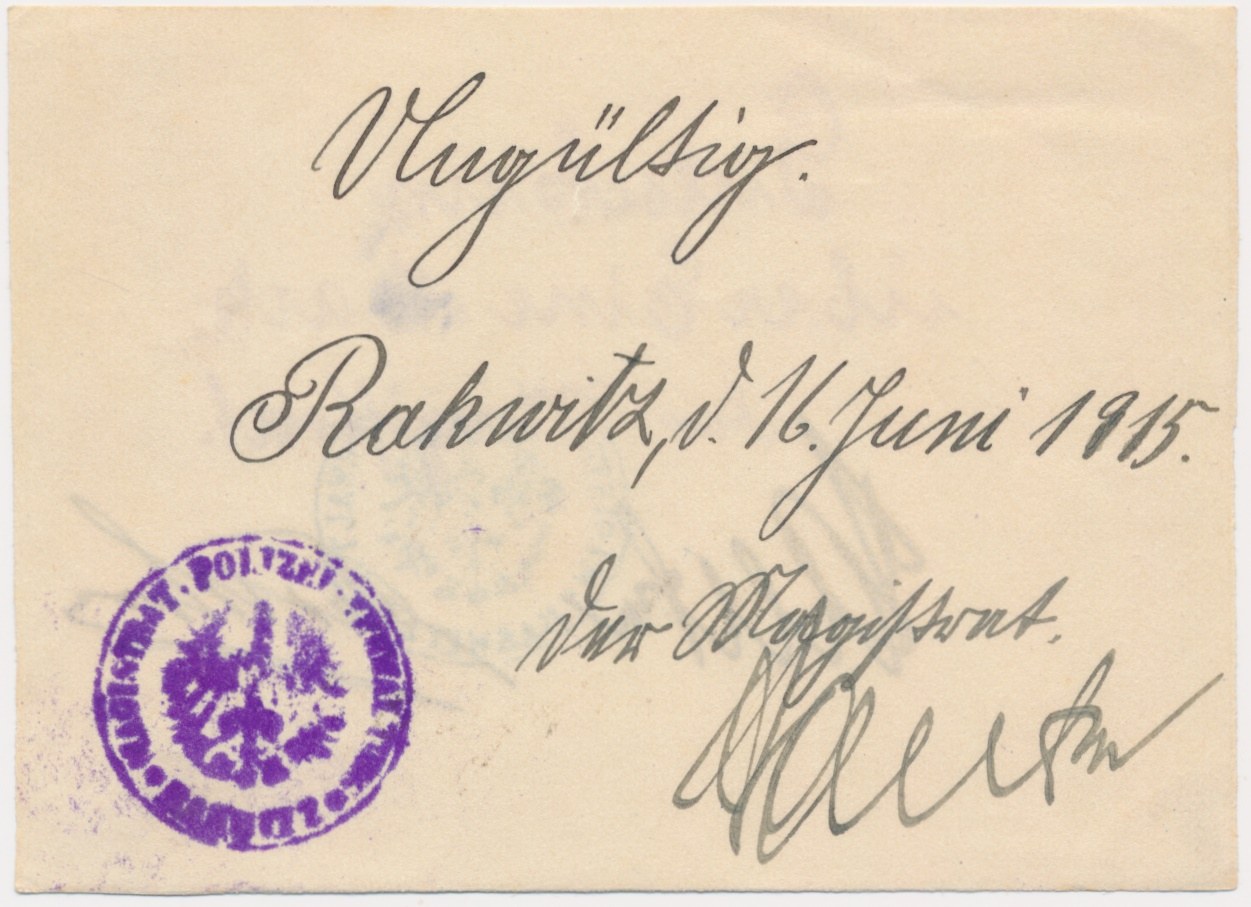 Ungültig.
Rakwitz, d. 16. Juni 1915.
Der Magistrat.
MAGISTRAT · POLIZEI